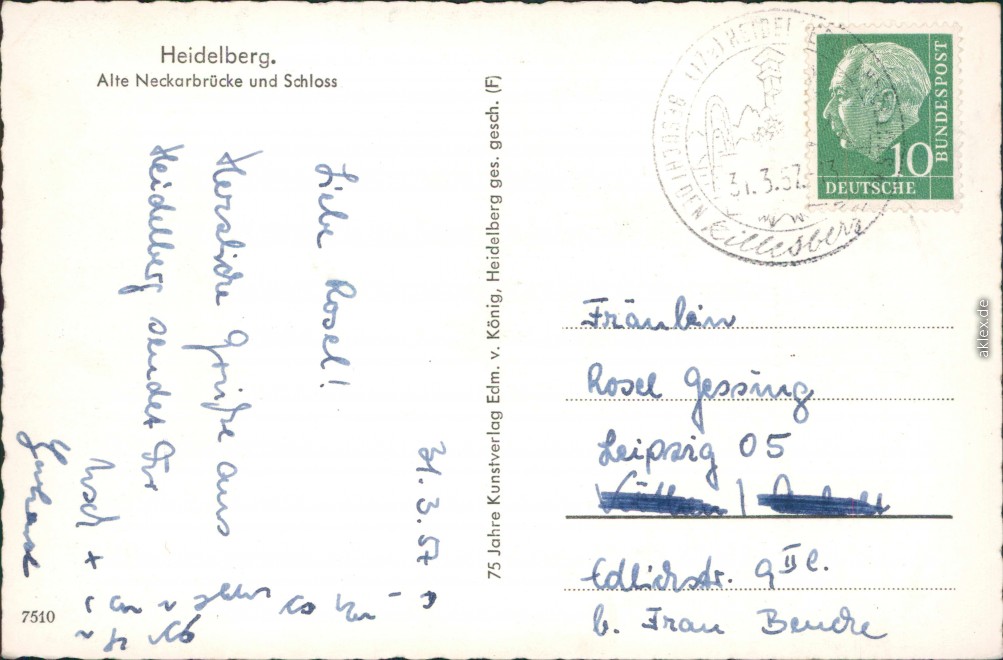 Heidelberg.
Alte Neckarbrücke und Schloss
31.3.57
Liebe Rosel!
Herzliche Grüße aus
Heidelberg sendet Dir
Usch +
7510
75 Jahre Kunstverlag Edm. v. König, Heidelberg ges. gesch. (F)
(17a) HEIDELBERG
BESUCHT DEN
31.3.57
Killesberg
10
DEUTSCHE
BUNDESPOST
Fräulein
Rosel Gessing
Leipzig O5
Edlichstr. 9 II l.
b. Frau Bencke
aklex.de